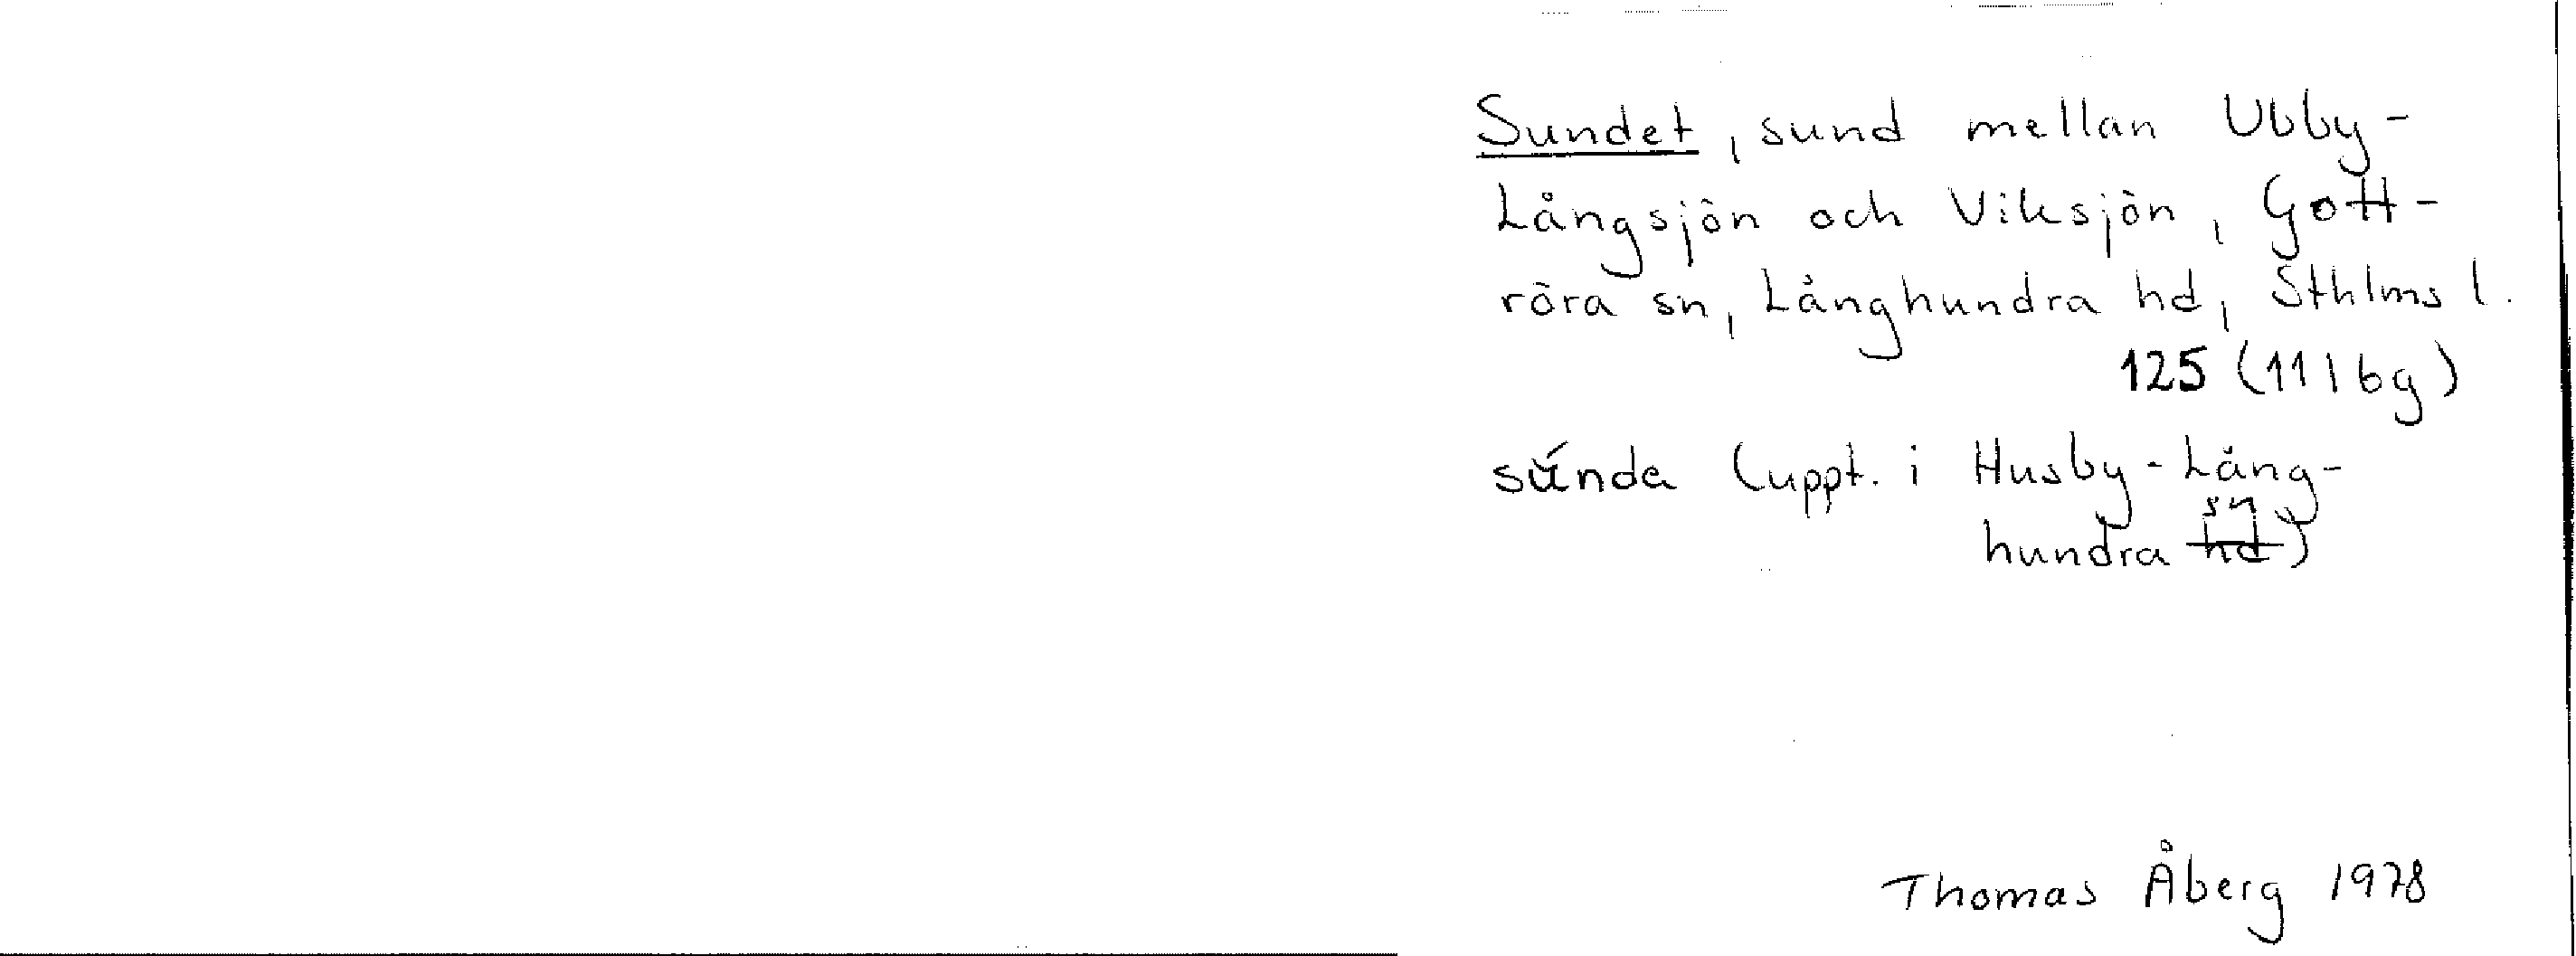 Sundet, sund mellan Ubby-
Långsjön och Viksjön, Gott-
röra sn, Långhundra hd, Sthlms l.
125 (11I6g)
sú̆nda (uppt. i Husby-Lång-
hundra sn hd)
Thomas Åberg 1978